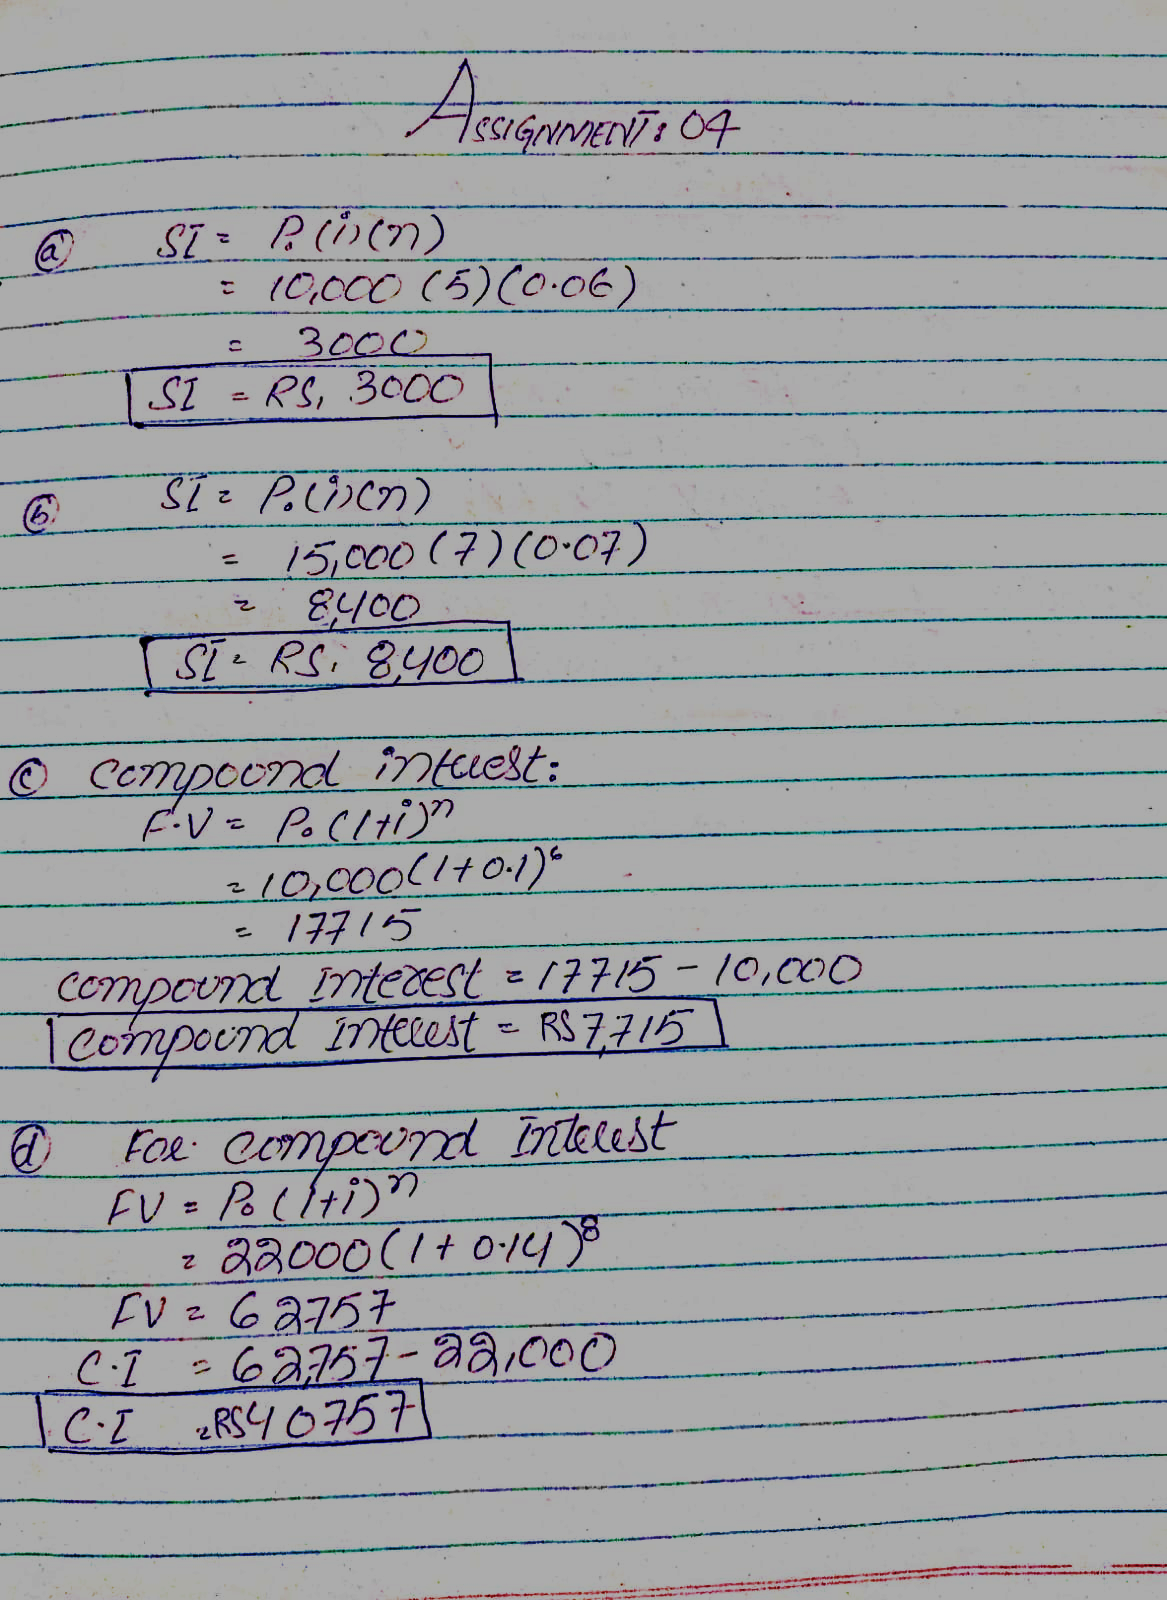 ASSIGNMENT: 04
(a) SI = P₀(i)(n)
= 10,000 (5)(0.06)
= 3000
SI = RS, 3000
(b) SI = P₀(i)(n)
= 15,000 (7)(0.07)
= 8,400
SI = RS, 8,400
(c) Compound interest:
F.V = P₀(1+i)ⁿ
= 10,000(1+0.1)⁶
= 17715
Compound Interest = 17715 - 10,000
Compound interest = RS 7,715
(d) For Compound Interest
FV = P₀(1+i)ⁿ
= 22000(1+0.14)⁸
FV = 62757
C.I = 62,757 - 22,000
C.I = RS 40757